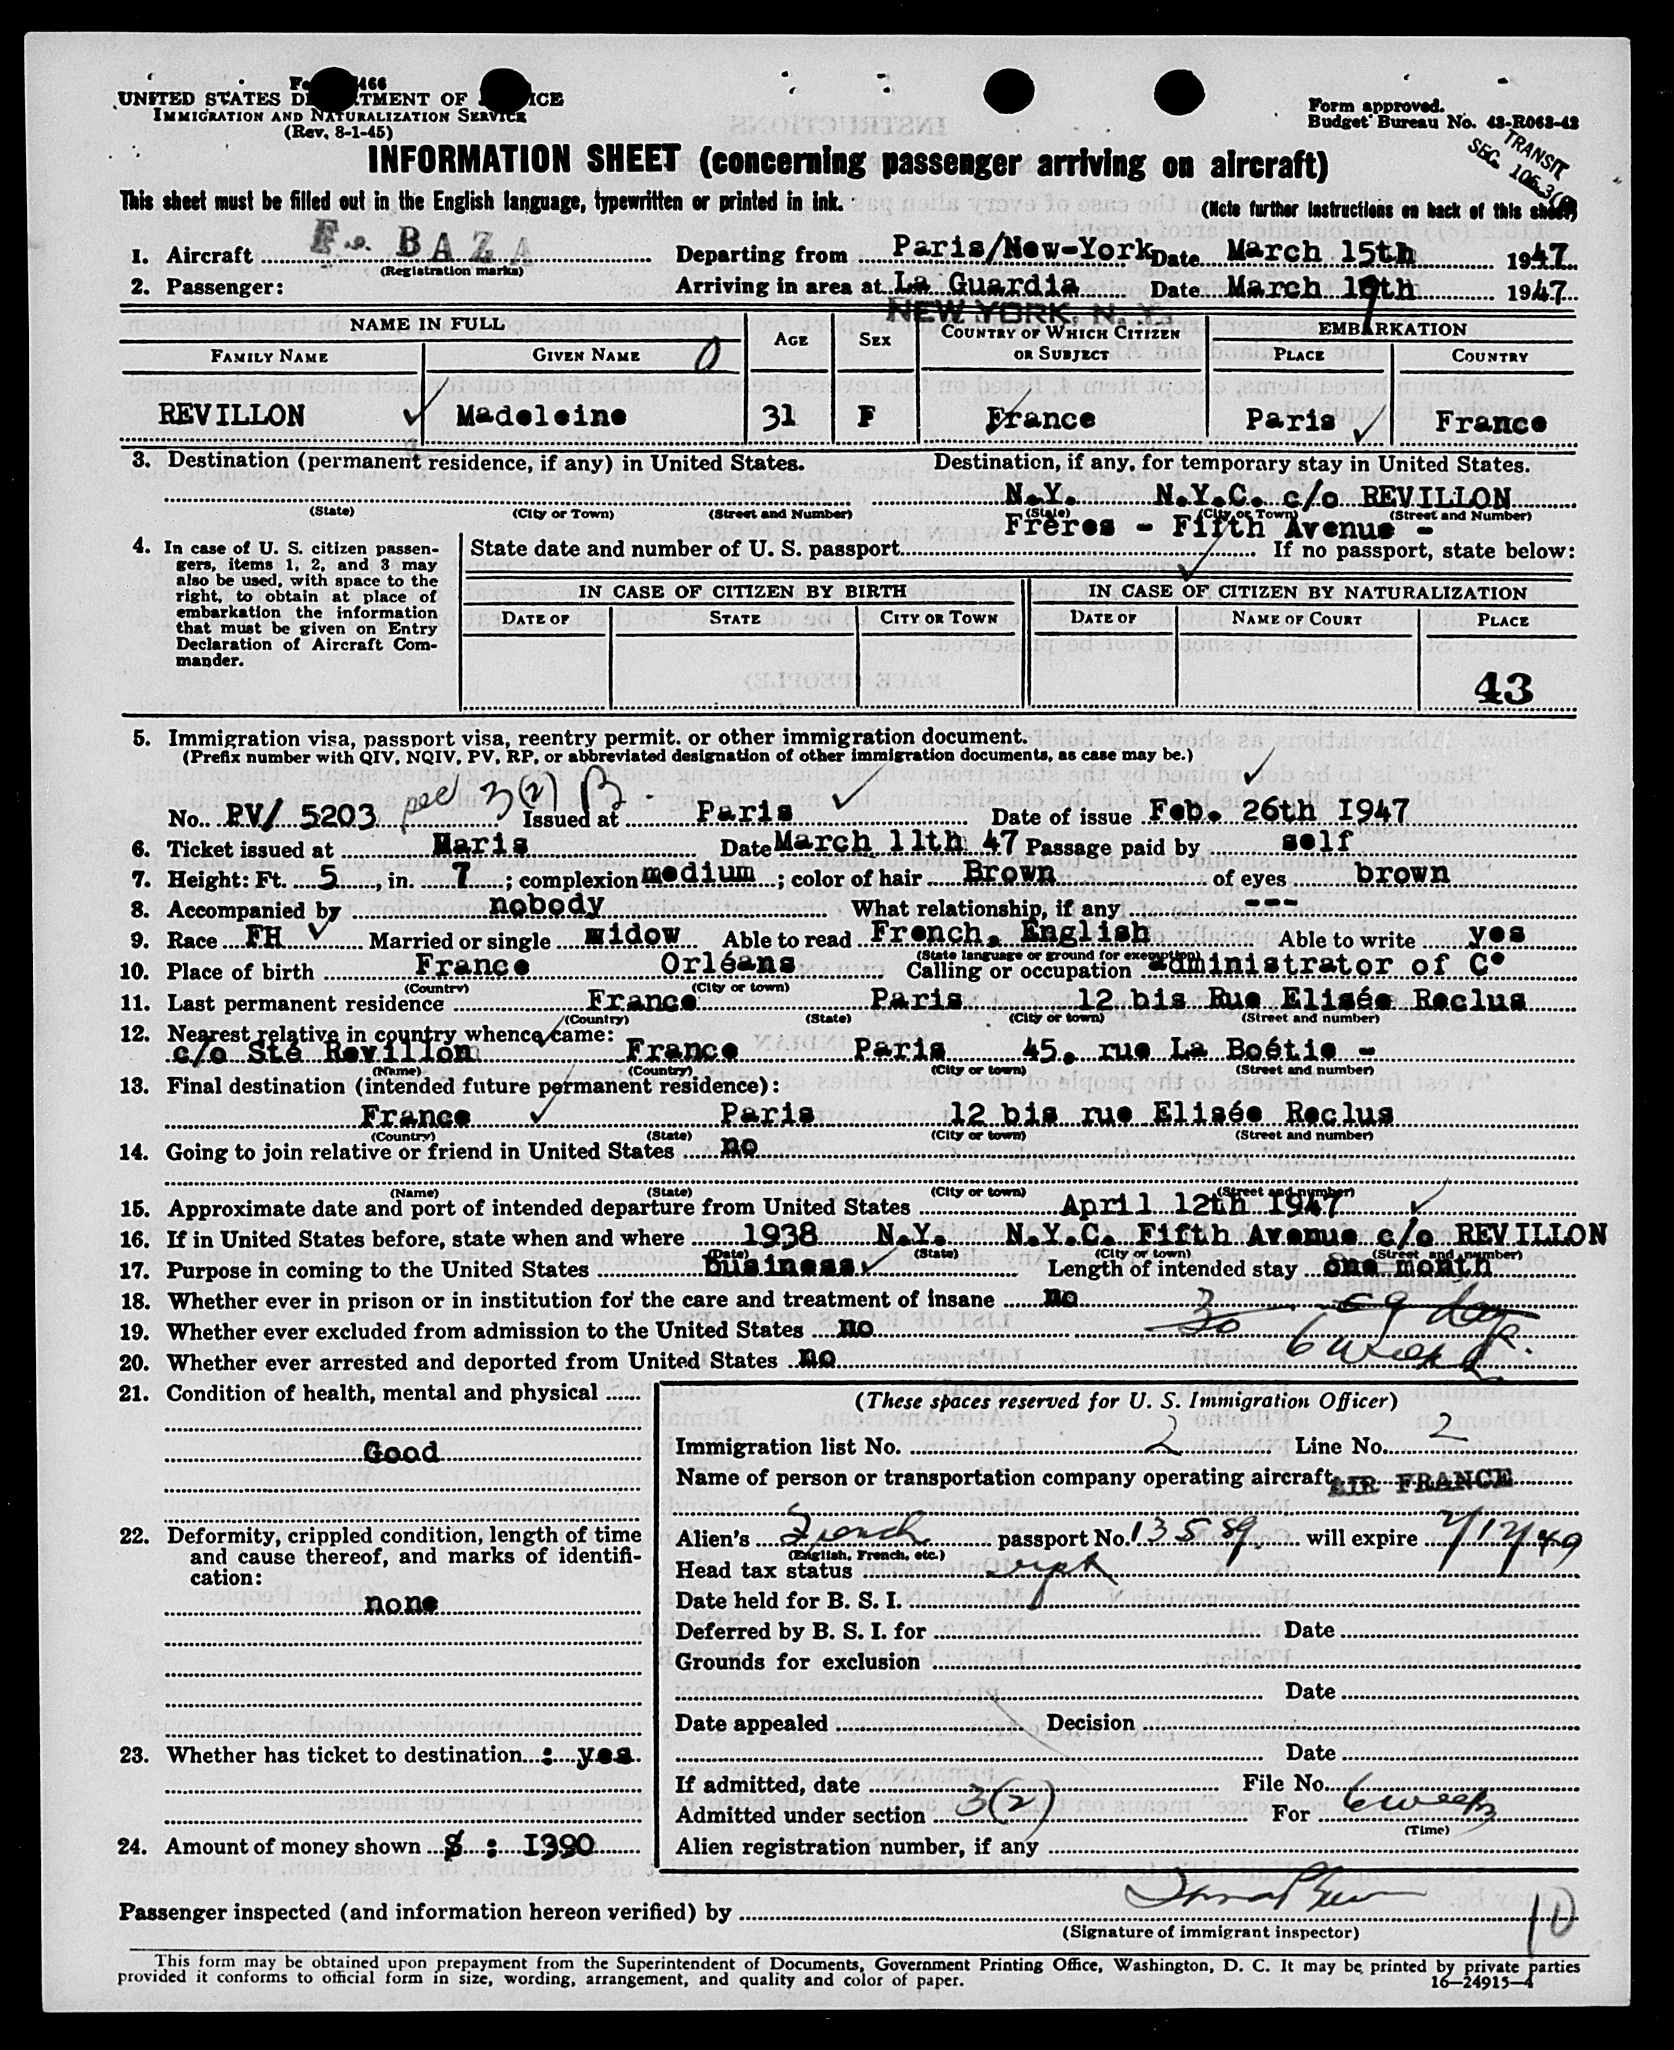 UNITED STATES DEPARTMENT OF JUSTICE
IMMIGRATION AND NATURALIZATION SERVICE
(Rev. 8-1-45)
Form approved.
Budget Bureau No. 43-R063-42
TRANSIT
SEC.
INFORMATION SHEET (concerning passenger arriving on aircraft)
This sheet must be filled out in the English language, typewritten or printed in ink.
(Note further instructions on back of this sheet)
1. Aircraft F. BAZA Departing from Paris/New-York Date March 15th 1947
(Registration marks)
2. Passenger: Arriving in area at La Guardia Date March 19th 1947
NEW YORK, N. Y.
NAME IN FULL AGE SEX COUNTRY OF WHICH CITIZEN OR SUBJECT EMBARKATION
FAMILY NAME GIVEN NAME PLACE COUNTRY
REVILLON Madeleine 31 F France Paris France
3. Destination (permanent residence, if any) in United States. Destination, if any, for temporary stay in United States.
N.Y. N.Y.C. c/o REVILLON
(State) (City or Town) (Street and Number) (State) (City or Town) (Street and Number)
Freres - Fifth Avenue -
4. In case of U. S. citizen passengers, items 1, 2, and 3 may also be used, with space to the right, to obtain at place of embarkation the information that must be given on Entry Declaration of Aircraft Commander.
State date and number of U. S. passport If no passport, state below:
IN CASE OF CITIZEN BY BIRTH IN CASE OF CITIZEN BY NATURALIZATION
DATE OF STATE CITY OR TOWN DATE OF NAME OF COURT PLACE
43
5. Immigration visa, passport visa, reentry permit, or other immigration document.
(Prefix number with QIV, NQIV, PV, RP, or abbreviated designation of other immigration documents, as case may be.)
No. PV/ 5203 sec 3(2) Issued at Paris Date of issue Feb. 26th 1947
6. Ticket issued at Paris Date March 11th 47 Passage paid by self
7. Height: Ft. 5, in. 7; complexion medium; color of hair Brown of eyes brown
8. Accompanied by nobody What relationship, if any ---
9. Race FH Married or single widow Able to read French, English Able to write yes
(State language or ground for exemption)
10. Place of birth France Orléans Calling or occupation administrator of C°
(Country) (City or town)
11. Last permanent residence France Paris 12 bis Rue Elisée Reclus
(Country) (State) (City or town) (Street and number)
12. Nearest relative in country whence came:
c/o Sté Revillon France Paris 45, rue La Boétie -
(Name) (Country) (City or town) (Street and number)
13. Final destination (intended future permanent residence):
France Paris 12 bis rue Elisée Reclus
(Country) (State) (City or town) (Street and number)
14. Going to join relative or friend in United States no
(Name) (State) (City or town) (Street and number)
15. Approximate date and port of intended departure from United States April 12th 1947
16. If in United States before, state when and where 1938 N.Y. N.Y.C. Fifth Avenue c/o REVILLON
(Date) (State) (City or town) (Street and number)
17. Purpose in coming to the United States business Length of intended stay one month
18. Whether ever in prison or in institution for the care and treatment of insane no
19. Whether ever excluded from admission to the United States no
20. Whether ever arrested and deported from United States no
6 weeks
21. Condition of health, mental and physical
Good
22. Deformity, crippled condition, length of time and cause thereof, and marks of identification:
none
23. Whether has ticket to destination : yes.
24. Amount of money shown $ : 1390
(These spaces reserved for U. S. Immigration Officer)
Immigration list No. 2 Line No. 2
Name of person or transportation company operating aircraft AIR FRANCE
Alien's French passport No. 13589 will expire 2/12/49
(English, French, etc.)
Head tax status
Date held for B. S. I.
Deferred by B. S. I. for Date
Grounds for exclusion
Date
Date appealed Decision
Date
If admitted, date File No.
Admitted under section 3(2) For 6 weeks
(Time)
Alien registration number, if any
Passenger inspected (and information hereon verified) by
(Signature of immigrant inspector)
10
This form may be obtained upon prepayment from the Superintendent of Documents, Government Printing Office, Washington, D. C. It may be printed by private parties
provided it conforms to official form in size, wording, arrangement, and quality and color of paper. 16—24915-4